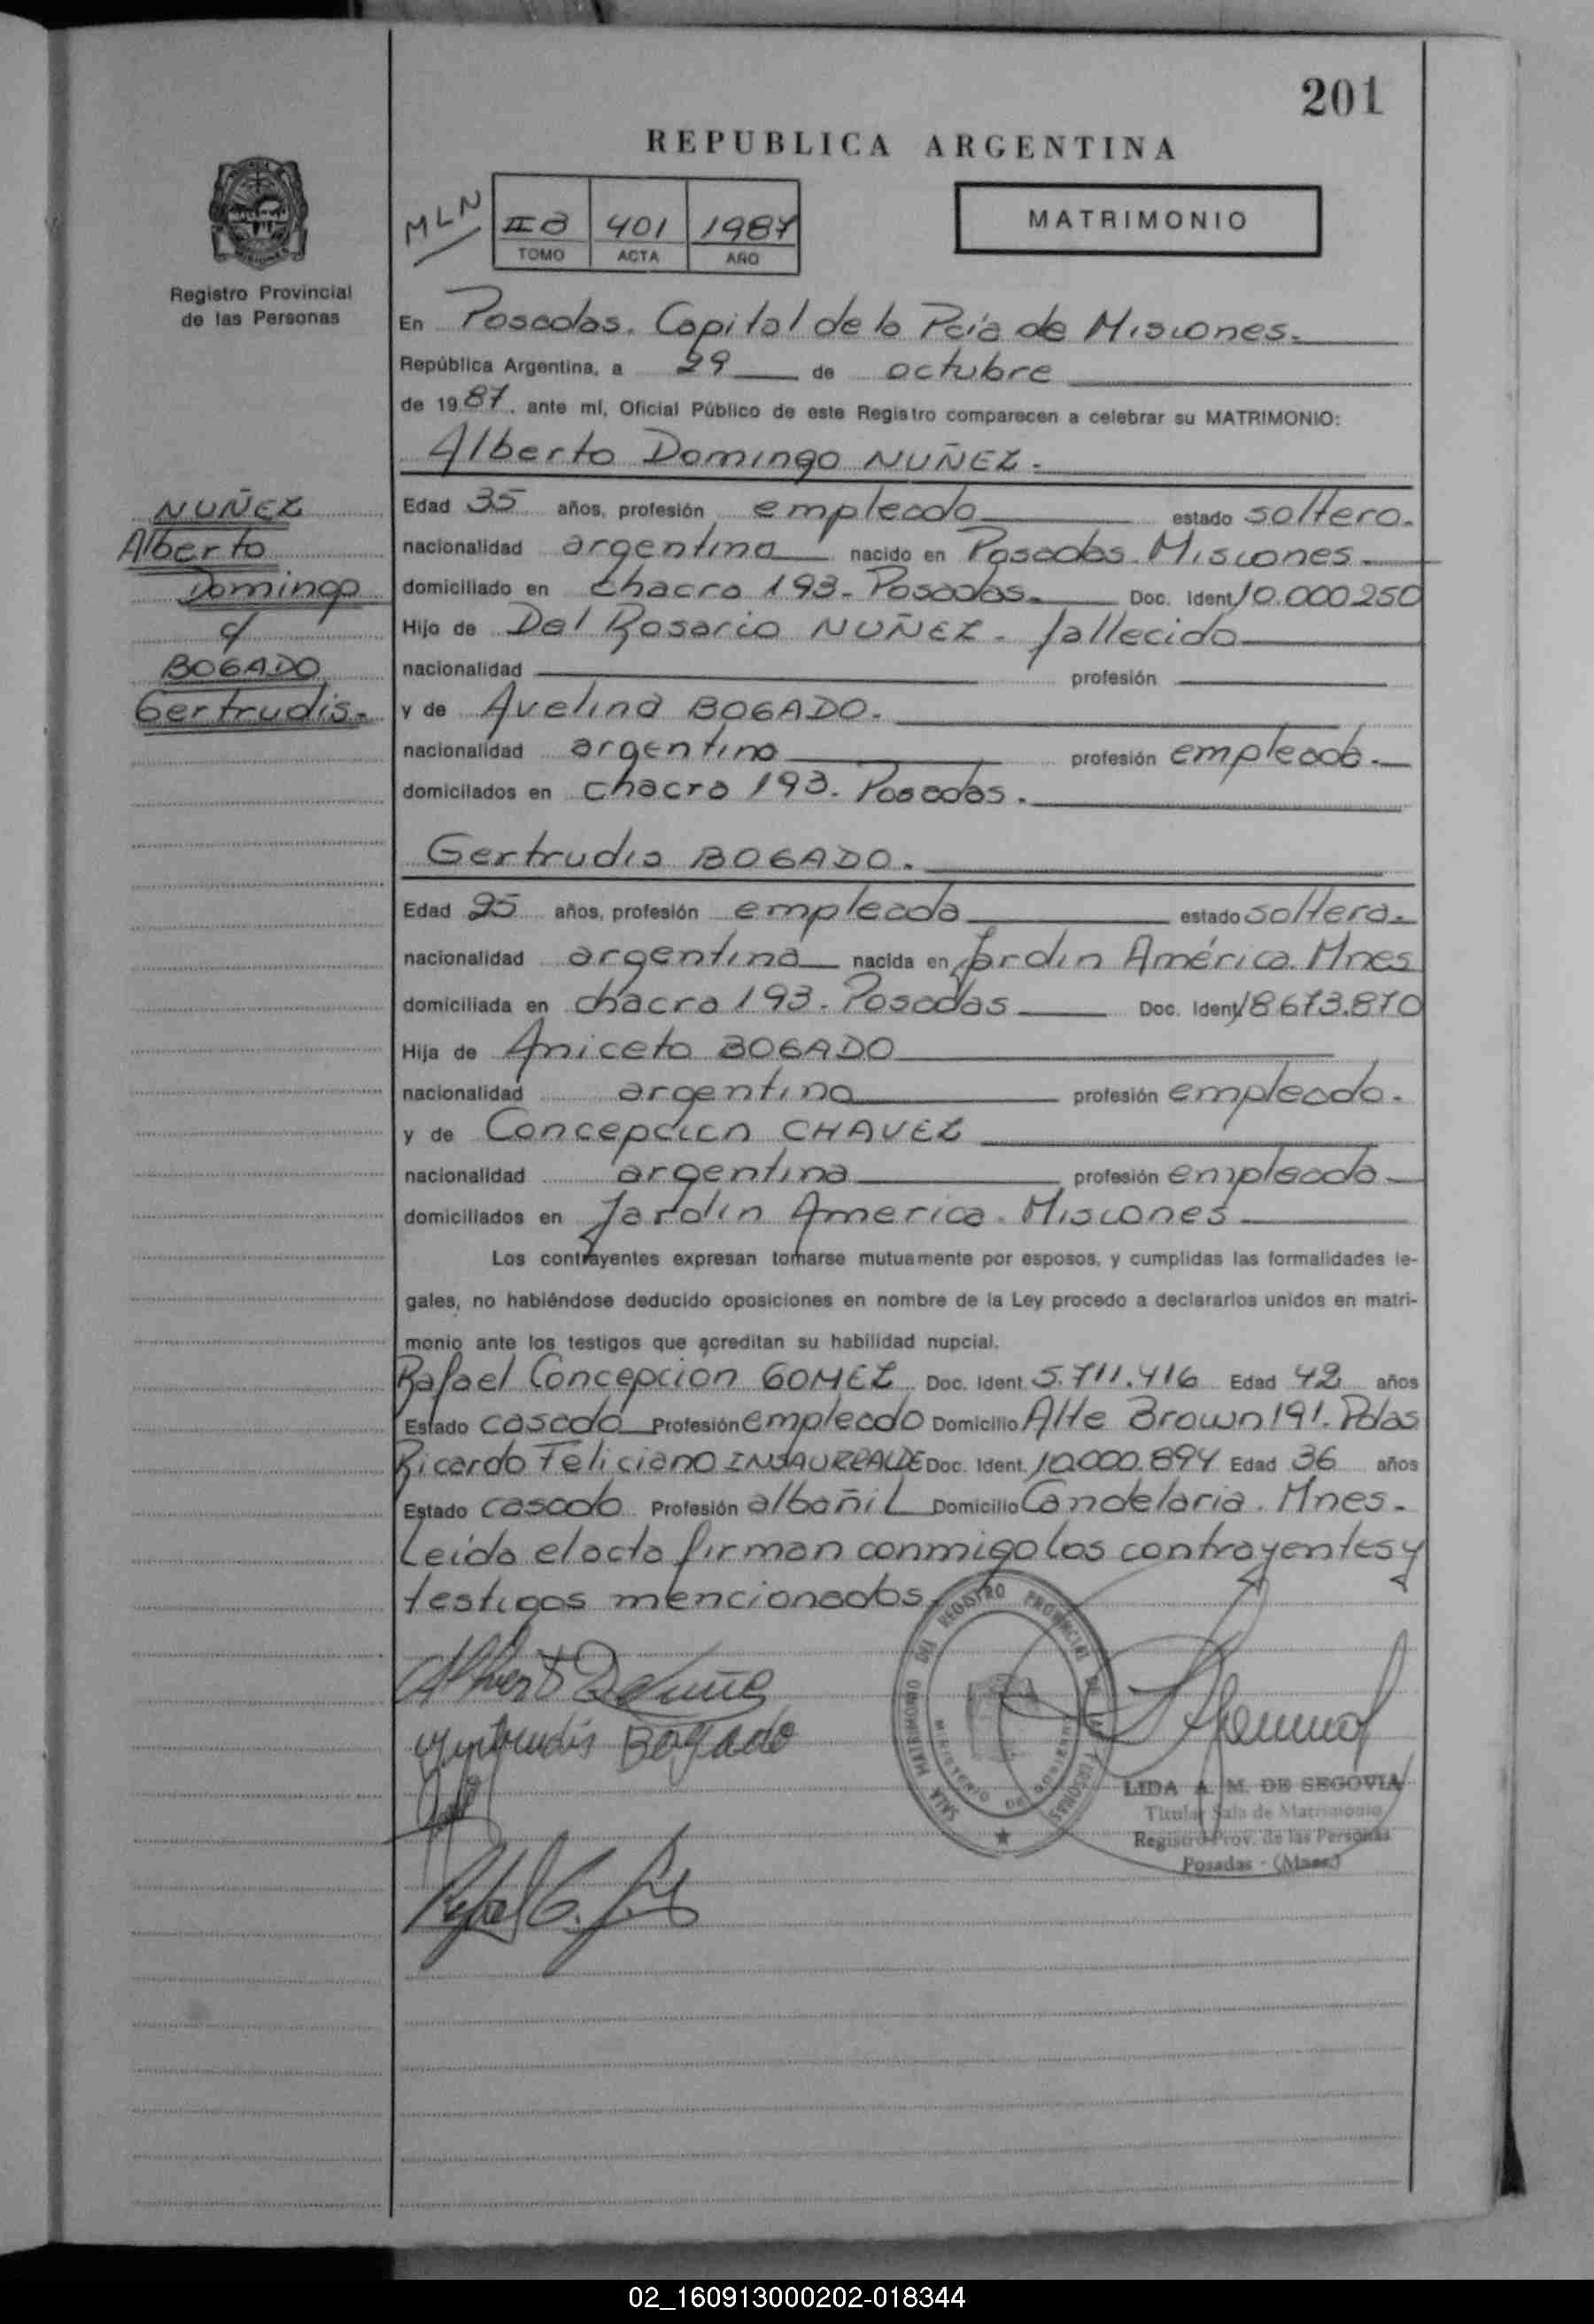 201
REPUBLICA ARGENTINA
MLN
IIa 401 1987
TOMO ACTA AÑO
MATRIMONIO
Registro Provincial
de las Personas
En Posadas. Capital de la Pcia de Misiones.
República Argentina, a 29 de octubre
de 1987, ante mí, Oficial Público de este Registro comparecen a celebrar su MATRIMONIO:
Alberto Domingo NUÑEZ.
NUÑEZ
Alberto
Domingo
c/
BOGADO
Gertrudis.
Edad 35 años, profesión empleado estado soltero.
nacionalidad argentina nacido en Posadas. Misiones.
domiciliado en chacra 193. Posadas. Doc. Ident. 10.000.250
Hijo de Del Rosario NUÑEZ. fallecido
nacionalidad profesión
y de Avelina BOGADO.
nacionalidad argentina profesión empleada.
domicilados en chacra 193. Posadas.
Gertrudis BOGADO.
Edad 25 años, profesión empleada estado soltera.
nacionalidad argentina nacida en Jardin América. Mnes
domiciliada en chacra 193. Posadas Doc. Ident. 18673.870
Hija de Aniceto BOGADO
nacionalidad argentina profesión empleado.
y de Concepcion CHAVEZ
nacionalidad argentina profesión empleada
domiciliados en Jardin America. Misiones
Los contrayentes expresan tomarse mutuamente por esposos, y cumplidas las formalidades le-
gales, no habiéndose deducido oposiciones en nombre de la Ley procedo a declararlos unidos en matri-
monio ante los testigos que acreditan su habilidad nupcial.
Rafael Concepcion GOMEZ Doc. Ident. 5.711.416 Edad 42 años
Estado casado Profesión empleado Domicilio Alte Brown 191. Pdas
Ricardo Feliciano INSAURRALDE Doc. Ident. 10.000.894 Edad 36 años
Estado casado Profesión albañil Domicilio Candelaria. Mnes.
Leída el acta firman conmigo los contrayentes y
testigos mencionados.
Gertrudis Bogado
SALA MATRIMONIO DEL REGISTRO PROVINCIAL DE LAS PERSONAS
MINISTERIO DE GOBIERNO
LIDA A. M. DE SEGOVIA
Titular Sala de Matrimonio
Registro Prov. de las Personas
Posadas - (Mnes.)
02_160913000202-018344